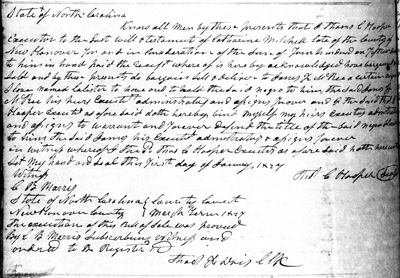 State of North Carolina
Know all Men by these presents that I Thos C Hooper
Executor to the Last will & testament of Catharine Mitchel late of the County of
New Hanover for and in Consideration of the Sum of four hundred and
to him in hand paid the receipt where of is here by acknowledged have bargained &
Sold and by these presents do bargain Sell & deliver to James F McRee a certain negro
named to have and to hold the Said negro to him the Said James F
McRee his heirs Executors administrators and assigns forever and I the Said Thos C
Hooper Executor as afore said doth hereby bind myself my heirs Executors administrators
and assigns to warrant and forever defend the title of the Said negro
to him the Said James his Executors administrators & assigns forever
in witness whereof I the Sd Thos C Hooper Executor as afore said hath hereunto
Set My hand and Seal this first day of January, 1827
Witness Thos C Hooper (Seal)
C B Morris
State of North Carolina County Court
New Hanover County March Term 1827
The execution of this Bill of Sale was proved
By C B Morris Subscribing Witness and
ordered to Be Registered
Thos F Davis Clk